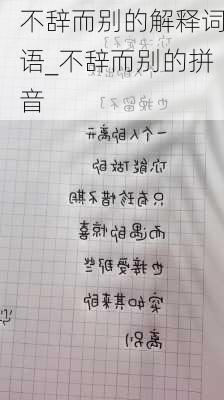 不辞而别的解释词
语_不辞而别的拼
音
你决定不了
也挽留不了
一个人的离开
你能做的
只有珍惜不期
而遇的惊喜
也接受那些
突如其来的
离别